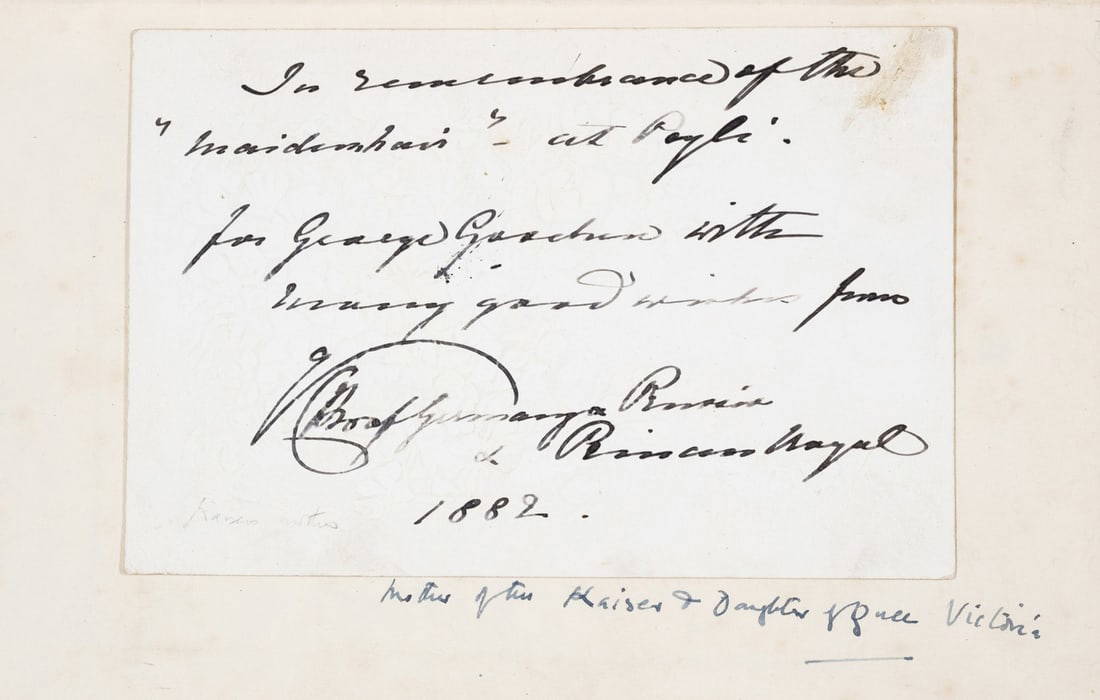 In remembrance of the
"Maidenhair" - at Pegli.
for George with
many good wishes from
of Germany & Prussia
& Princess Royal
1882.
Kaisers mother
Mother of the Kaiser & Daughter of Queen Victoria